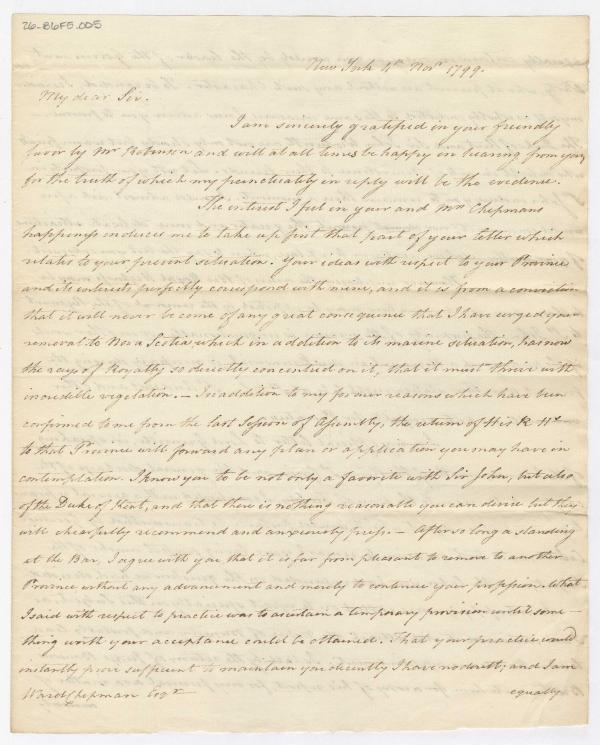 26-B6F5.005
New York 4th Novr 1799.
My dear Sir.
I am sincerely gratified in your friendly
favor by Mr Robinson and will at all times be happy in hearing from you,
for the truth of which my punctuality in reply will be the evidence.
The interest I feel in your and Mrs Chipmans
happiness induces me to take up first that part of your letter which
relates to your present situation. Your ideas with respect to your Province
and its interests perfectly correspond with mine, and it is from a conviction
that it will never become of any great consequence that I have urged your
removal to Nova Scotia, which in addition to its marine situation, has now
the rays of Royalty so directly concentred on it, that it must thrive with
incredible vegetation. — In addition to my former reasons which have been
confirmed to me from the last Session of Assembly, the return of His R Hs
to that Province will forward any plan or application you may have in
contemplation. I know you to be not only a favorite with Sir John, but also
of the Duke of Kent, and that there is nothing reasonable you can desire but they
will chearfully recommend and anxiously press. — After so long a standing
at the Bar, I agree with you that it is far from pleasant to remove to another
Province without any advancement and merely to continue your profession. What
I said with respect to practice was to ascertain a temporary provision until some-
thing worth your acceptance could be obtained. That your practice would
instantly prove sufficient to maintain you decently I have no doubt; and I am
Ward Chipman Esqr equally